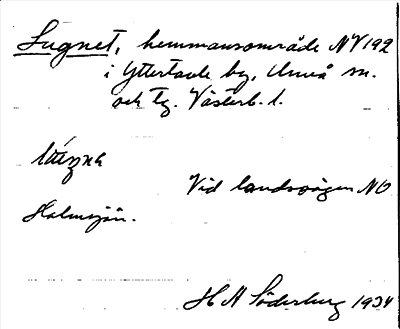 Lugnet, hemmansområde NV192
i Yttertavle by, Umeå sn.
och tg. Västerb. l.
Vid landsvägen NO
Holmsjön.
H N Söderberg 1934